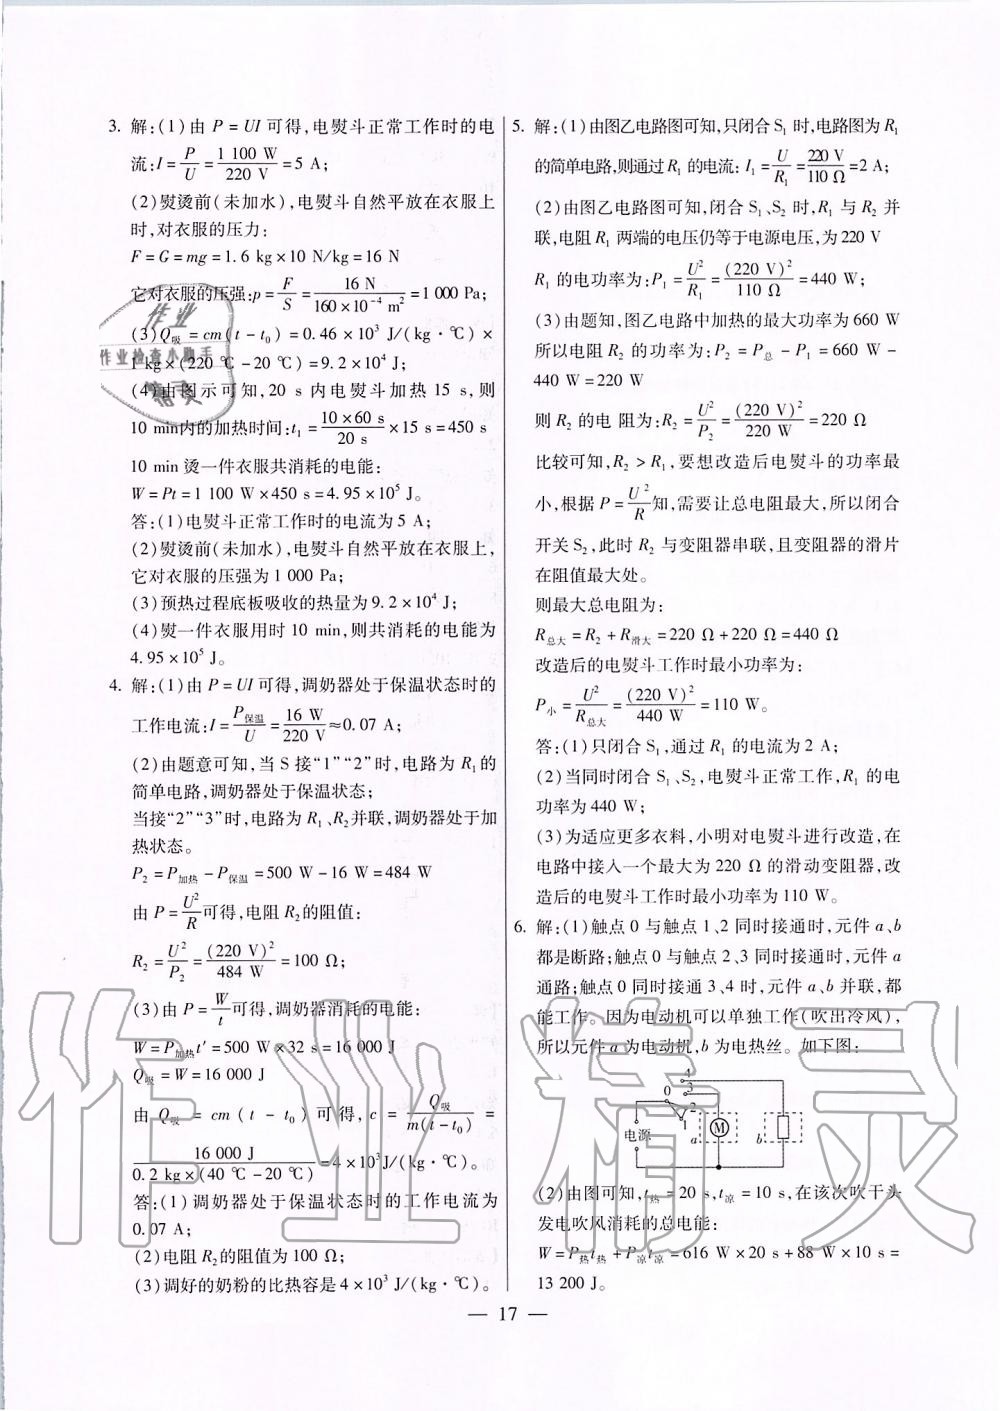 3. 解:(1)由 P = UI 可得,电熨斗正常工作时的电
流:I = P/U = 1 100 W/220 V = 5 A;
(2)熨烫前(未加水),电熨斗自然平放在衣服上
时,对衣服的压力:
F = G = mg = 1. 6 kg × 10 N/kg = 16 N
它对衣服的压强:p = F/S = 16 N/160 × 10⁻⁴ m² = 1 000 Pa;
(3)Q吸 = cm(t - t₀) = 0. 46 × 10³ J/(kg · ℃) ×
1 kg × (220 ℃ - 20 ℃) = 9. 2 × 10⁴ J;
(4)由图示可知,20 s 内电熨斗加热 15 s,则
10 min内的加热时间:t₁ = 10 × 60 s/20 s × 15 s = 450 s
10 min 烫一件衣服共消耗的电能:
W = Pt = 1 100 W × 450 s = 4. 95 × 10⁵ J。
答:(1)电熨斗正常工作时的电流为 5 A;
(2)熨烫前(未加水),电熨斗自然平放在衣服上,
它对衣服的压强为 1 000 Pa;
(3)预热过程底板吸收的热量为 9. 2 × 10⁴ J;
(4)熨一件衣服用时 10 min,则共消耗的电能为
4. 95 × 10⁵ J。
4. 解:(1)由 P = UI 可得,调奶器处于保温状态时的
工作电流:I = P保温/U = 16 W/220 V ≈ 0. 07 A;
(2)由题意可知,当 S 接“1”“2”时,电路为 R₁ 的
简单电路,调奶器处于保温状态;
当接“2”“3”时,电路为 R₁、R₂并联,调奶器处于加
热状态。
P₂ = P加热 - P保温 = 500 W - 16 W = 484 W
由 P = U²/R 可得,电阻 R₂的阻值:
R₂ = U²/P₂ = (220 V)²/484 W = 100 Ω;
(3)由 P = W/t 可得,调奶器消耗的电能:
W = P加热t′ = 500 W × 32 s = 16 000 J
Q吸 = W = 16 000 J
由 Q吸 = cm (t - t₀) 可得, c = Q吸/m(t - t₀) =
16 000 J/0. 2 kg × (40 ℃ - 20 ℃) = 4 × 10³J/(kg · ℃)。
答:(1)调奶器处于保温状态时的工作电流为
0. 07 A;
(2)电阻 R₂的阻值为 100 Ω;
(3)调好的奶粉的比热容是 4 × 10³ J/(kg · ℃)。
5. 解:(1)由图乙电路图可知,只闭合 S₁ 时,电路图为 R₁
的简单电路,则通过 R₁ 的电流: I₁ = U/R₁ = 220 V/110 Ω = 2 A;
(2)由图乙电路图可知,闭合 S₁、S₂ 时,R₁ 与 R₂ 并
联,电阻 R₁ 两端的电压仍等于电源电压,为 220 V
R₁ 的电功率为:P₁ = U²/R₁ = (220 V)²/110 Ω = 440 W;
(3)由题知,图乙电路中加热的最大功率为 660 W
所以电阻 R₂ 的功率为:P₂ = P总 - P₁ = 660 W -
440 W = 220 W
则 R₂ 的电 阻为:R₂ = U²/P₂ = (220 V)²/220 W = 220 Ω
比较可知,R₂ > R₁,要想改造后电熨斗的功率最
小,根据 P = U²/R 知,需要让总电阻最大,所以闭合
开关 S₂,此时 R₂ 与变阻器串联,且变阻器的滑片
在阻值最大处。
则最大总电阻为:
R总大 = R₂ + R滑大 = 220 Ω + 220 Ω = 440 Ω
改造后的电熨斗工作时最小功率为:
P小 = U²/R总大 = (220 V)²/440 W = 110 W。
答:(1)只闭合 S₁,通过 R₁ 的电流为 2 A;
(2)当同时闭合 S₁、S₂,电熨斗正常工作,R₁ 的电
功率为 440 W;
(3)为适应更多衣料,小明对电熨斗进行改造,在
电路中接入一个最大为 220 Ω 的滑动变阻器,改
造后的电熨斗工作时最小功率为 110 W。
6. 解:(1)触点 0 与触点 1、2 同时接通时,元件 a、b
都是断路;触点 0 与触点 2、3 同时接通时,元件 a
通路;触点 0 同时接通 3、4 时,元件 a、b 并联,都
能工作。因为电动机可以单独工作(吹出冷风),
所以元件 a 为电动机,b 为电热丝。如下图:
4
3
0
2
1
电源
a
M
b
(2)由图可知,t热 = 20 s,t凉 = 10 s,在该次吹干头
发电吹风消耗的总电能:
W = P热t热 + P凉t凉 = 616 W × 20 s + 88 W × 10 s =
13 200 J。
— 17 —
作业
作业检查小助手
精灵
作业精灵